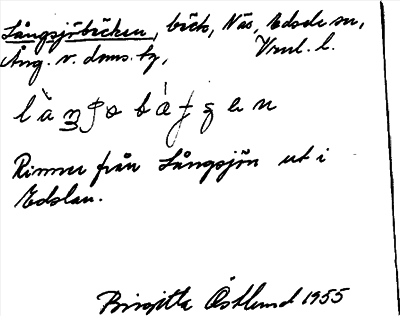 Långsjöbäcken, bäck, Näs, Edsele sn,
Ång. v. doms. hg, Vrul. l.
Rinner från Långsjön ut i
Edslan.
Birgitta Östlund 1955